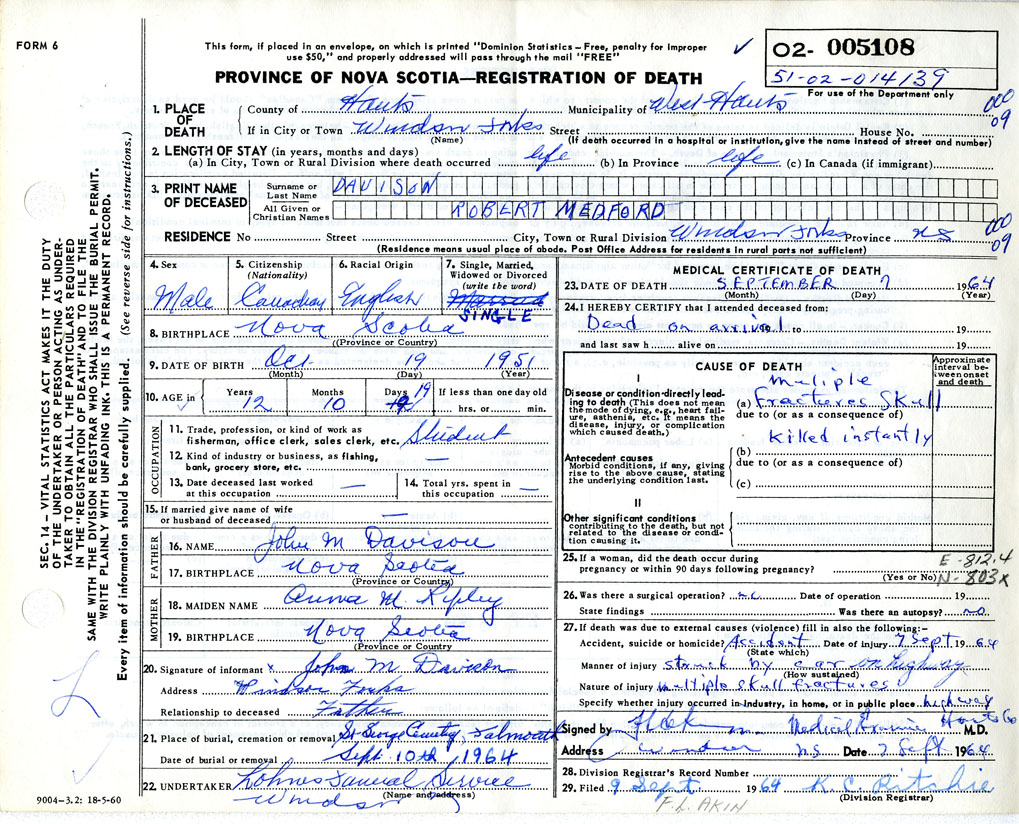 FORM 6
This form, if placed in an envelope, on which is printed "Dominion Statistics – Free, penalty for improper
use $50," and properly addressed will pass through the mail "FREE"
✓
O2- 005108
51-02-014139
PROVINCE OF NOVA SCOTIA—REGISTRATION OF DEATH
For use of the Department only
000
09
1. PLACE OF DEATH
County of Hants Municipality of West Hants
If in City or Town Windsor Forks Street House No.
(Name) (If death occurred in a hospital or institution, give the name instead of street and number)
2. LENGTH OF STAY (in years, months and days)
(a) In City, Town or Rural Division where death occurred life (b) In Province life (c) In Canada (if immigrant)
3. PRINT NAME OF DECEASED
Surname or Last Name DAVISON
All Given or Christian Names ROBERT MEDFORD
RESIDENCE No Street City, Town or Rural Division Windsor Forks Province NS
000
09
(Residence means usual place of abode. Post Office Address for residents in rural parts not sufficient)
4. Sex
Male
5. Citizenship
(Nationality)
Canadian
6. Racial Origin
English
7. Single, Married,
Widowed or Divorced
(write the word)
Married
SINGLE
8. BIRTHPLACE Nova Scotia
((Province or Country)
9. DATE OF BIRTH Oct 19 1951
(Month) (Day) (Year)
10. AGE in Years Months Days If less than one day old
✓ 12 10 19 hrs. or min.
OCCUPATION
11. Trade, profession, or kind of work as
fisherman, office clerk, sales clerk, etc. Student
12. Kind of industry or business, as fishing,
bank, grocery store, etc. —
13. Date deceased last worked
at this occupation —
14. Total yrs. spent in
this occupation —
15. If married give name of wife
or husband of deceased —
FATHER
16. NAME John M Davison
17. BIRTHPLACE Nova Scotia
(Province or Country)
MOTHER
18. MAIDEN NAME Anna M. Ripley
19. BIRTHPLACE Nova Scotia
(Province or Country
20. Signature of informant x John M Davison
Address Windsor Forks
Relationship to deceased Father
21. Place of burial, cremation or removal St George Cemetry, Falmouth
Date of burial or removal Sept. 10th 1964
22. UNDERTAKER Lohnes Funeral Service
(Name and address)
Windsor
9004-3.2: 18-5-60
SEC. 14 – VITAL STATISTICS ACT MAKES IT THE DUTY
OF THE UNDERTAKER OR PERSON ACTING AS UNDER-
TAKER TO OBTAIN ALL THE PARTICULARS REQUIRED
IN THE "REGISTRATION OF DEATH" AND TO FILE THE
SAME WITH THE DIVISION REGISTRAR WHO SHALL ISSUE THE BURIAL PERMIT.
WRITE PLAINLY WITH UNFADING INK. THIS IS A PERMANENT RECORD.
Every item of information should be carefully supplied. (See reverse side for instructions.)
MEDICAL CERTIFICATE OF DEATH
23. DATE OF DEATH SEPTEMBER 7 1964
(Month) (Day) (Year)
24. I HEREBY CERTIFY that I attended deceased from:
Dead on arrival to 19
and last saw h alive on 19
CAUSE OF DEATH
Approximate
interval be-
tween onset
and death
I
Disease or condition directly lead-
ing to death (This does not mean
the mode of dying, e.g., heart fail-
ure, asthenia, etc. It means the
disease, injury, or complication
which caused death.)
Muliple
(a) fractures Skull
due to (or as a consequence of)
Killed instantly
Antecedent causes
Morbid conditions, if any, giving
rise to the above cause, stating
the underlying condition last.
(b)
due to (or as a consequence of)
(c)
II
Other significant conditions
contributing to the death, but not
related to the disease or condi-
tion causing it.
25. If a woman, did the death occur during
pregnancy or within 90 days following pregnancy?
(Yes or No)
E-812.4
N-803x
26. Was there a surgical operation? no Date of operation 19
State findings Was there an autopsy? no
27. If death was due to external causes (violence) fill in also the following:–
Accident, suicide or homicide? Accident Date of injury 7 Sept 1964
(State which)
Manner of injury struck by car on highway
(How sustained)
Nature of injury multiple skull fractures
Specify whether injury occurred in industry, in home, or in public place highway
Signed by Medical Examiner Hants Co M.D.
Address Windsor NS Date 7 Sept 1964
28. Division Registrar's Record Number
29. Filed 9 Sept 1964 K. C. Ritchie
(Division Registrar)
F. L. AKIN